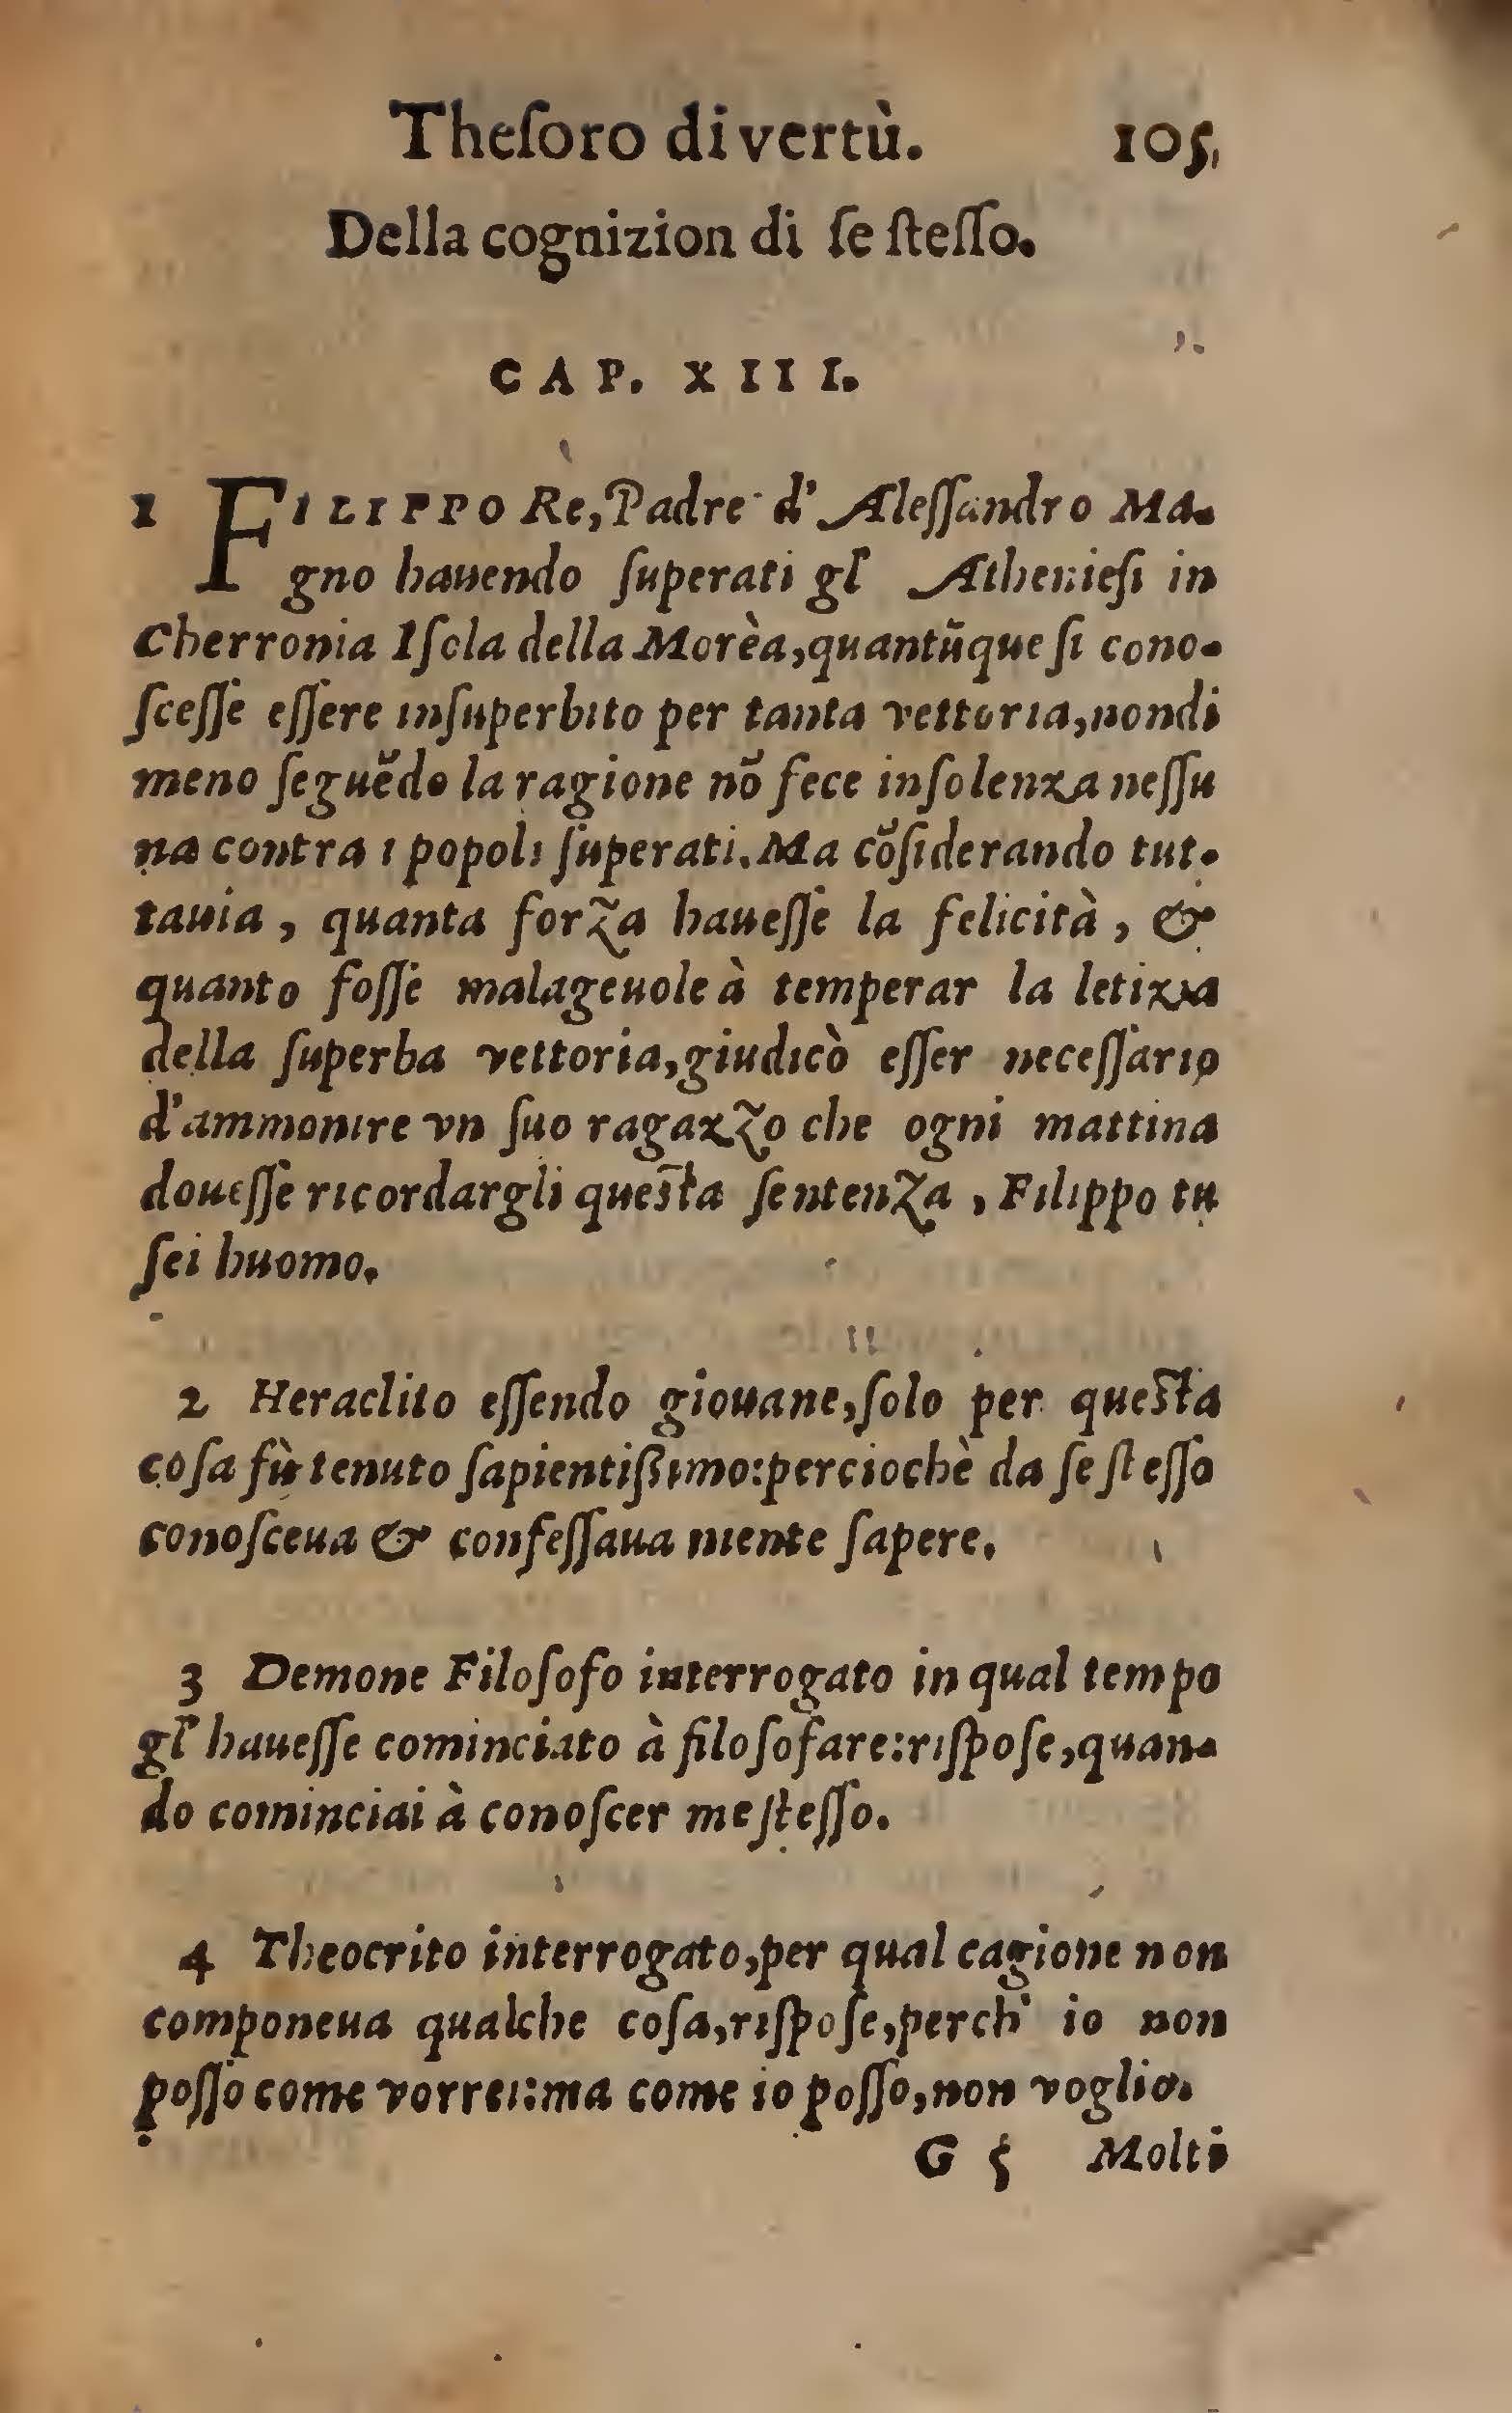 Theſoro di vertù. 105
Della cognizion di ſe ſteſſo.
CAP. XIII.
1 FILIPPO Re, Padre d'Aleſſandro Ma-
gno hauendo ſuperati gl' Athenieſi in
Cherronia Iſola della Morèa, quantũque ſi cono-
ſceſſe eſſere inſuperbito per tanta vettoria, nondi
meno ſeguẽdo la ragione nõ fece inſolenza neſſu
na contra i popoli ſuperati. Ma cõſiderando tut-
tauia, quanta forza haueſſe la felicità, &
quanto foſſe malageuole à temperar la letizia
della ſuperba vettoria, giudicò eſſer neceſſario
d'ammonire vn ſuo ragazzo che ogni mattina
doueſſe ricordargli queſta ſentenza, Filippo tu
ſei huomo.
2 Heraclito eſſendo giouane, ſolo per queſta
coſa fù tenuto ſapientißimo: perciochè da ſe ſteſſo
conoſceua & confeſſaua niente ſapere.
3 Demone Filoſofo interrogato in qual tempo
gl' haueſſe cominciato à filoſofare: riſpoſe, quan-
do cominciai à conoſcer me ſteſſo.
4 Theocrito interrogato, per qual cagione non
componeua qualche coſa, riſpoſe, perch' io non
poſſo come vorrei: ma come io poſſo, non voglio.
G 5 Molti